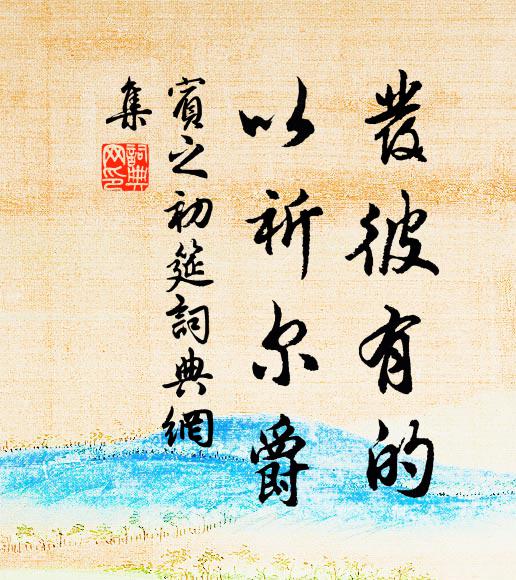 發彼有的
以祈尔爵
賓之初筵詞典網
集
詞典
网印